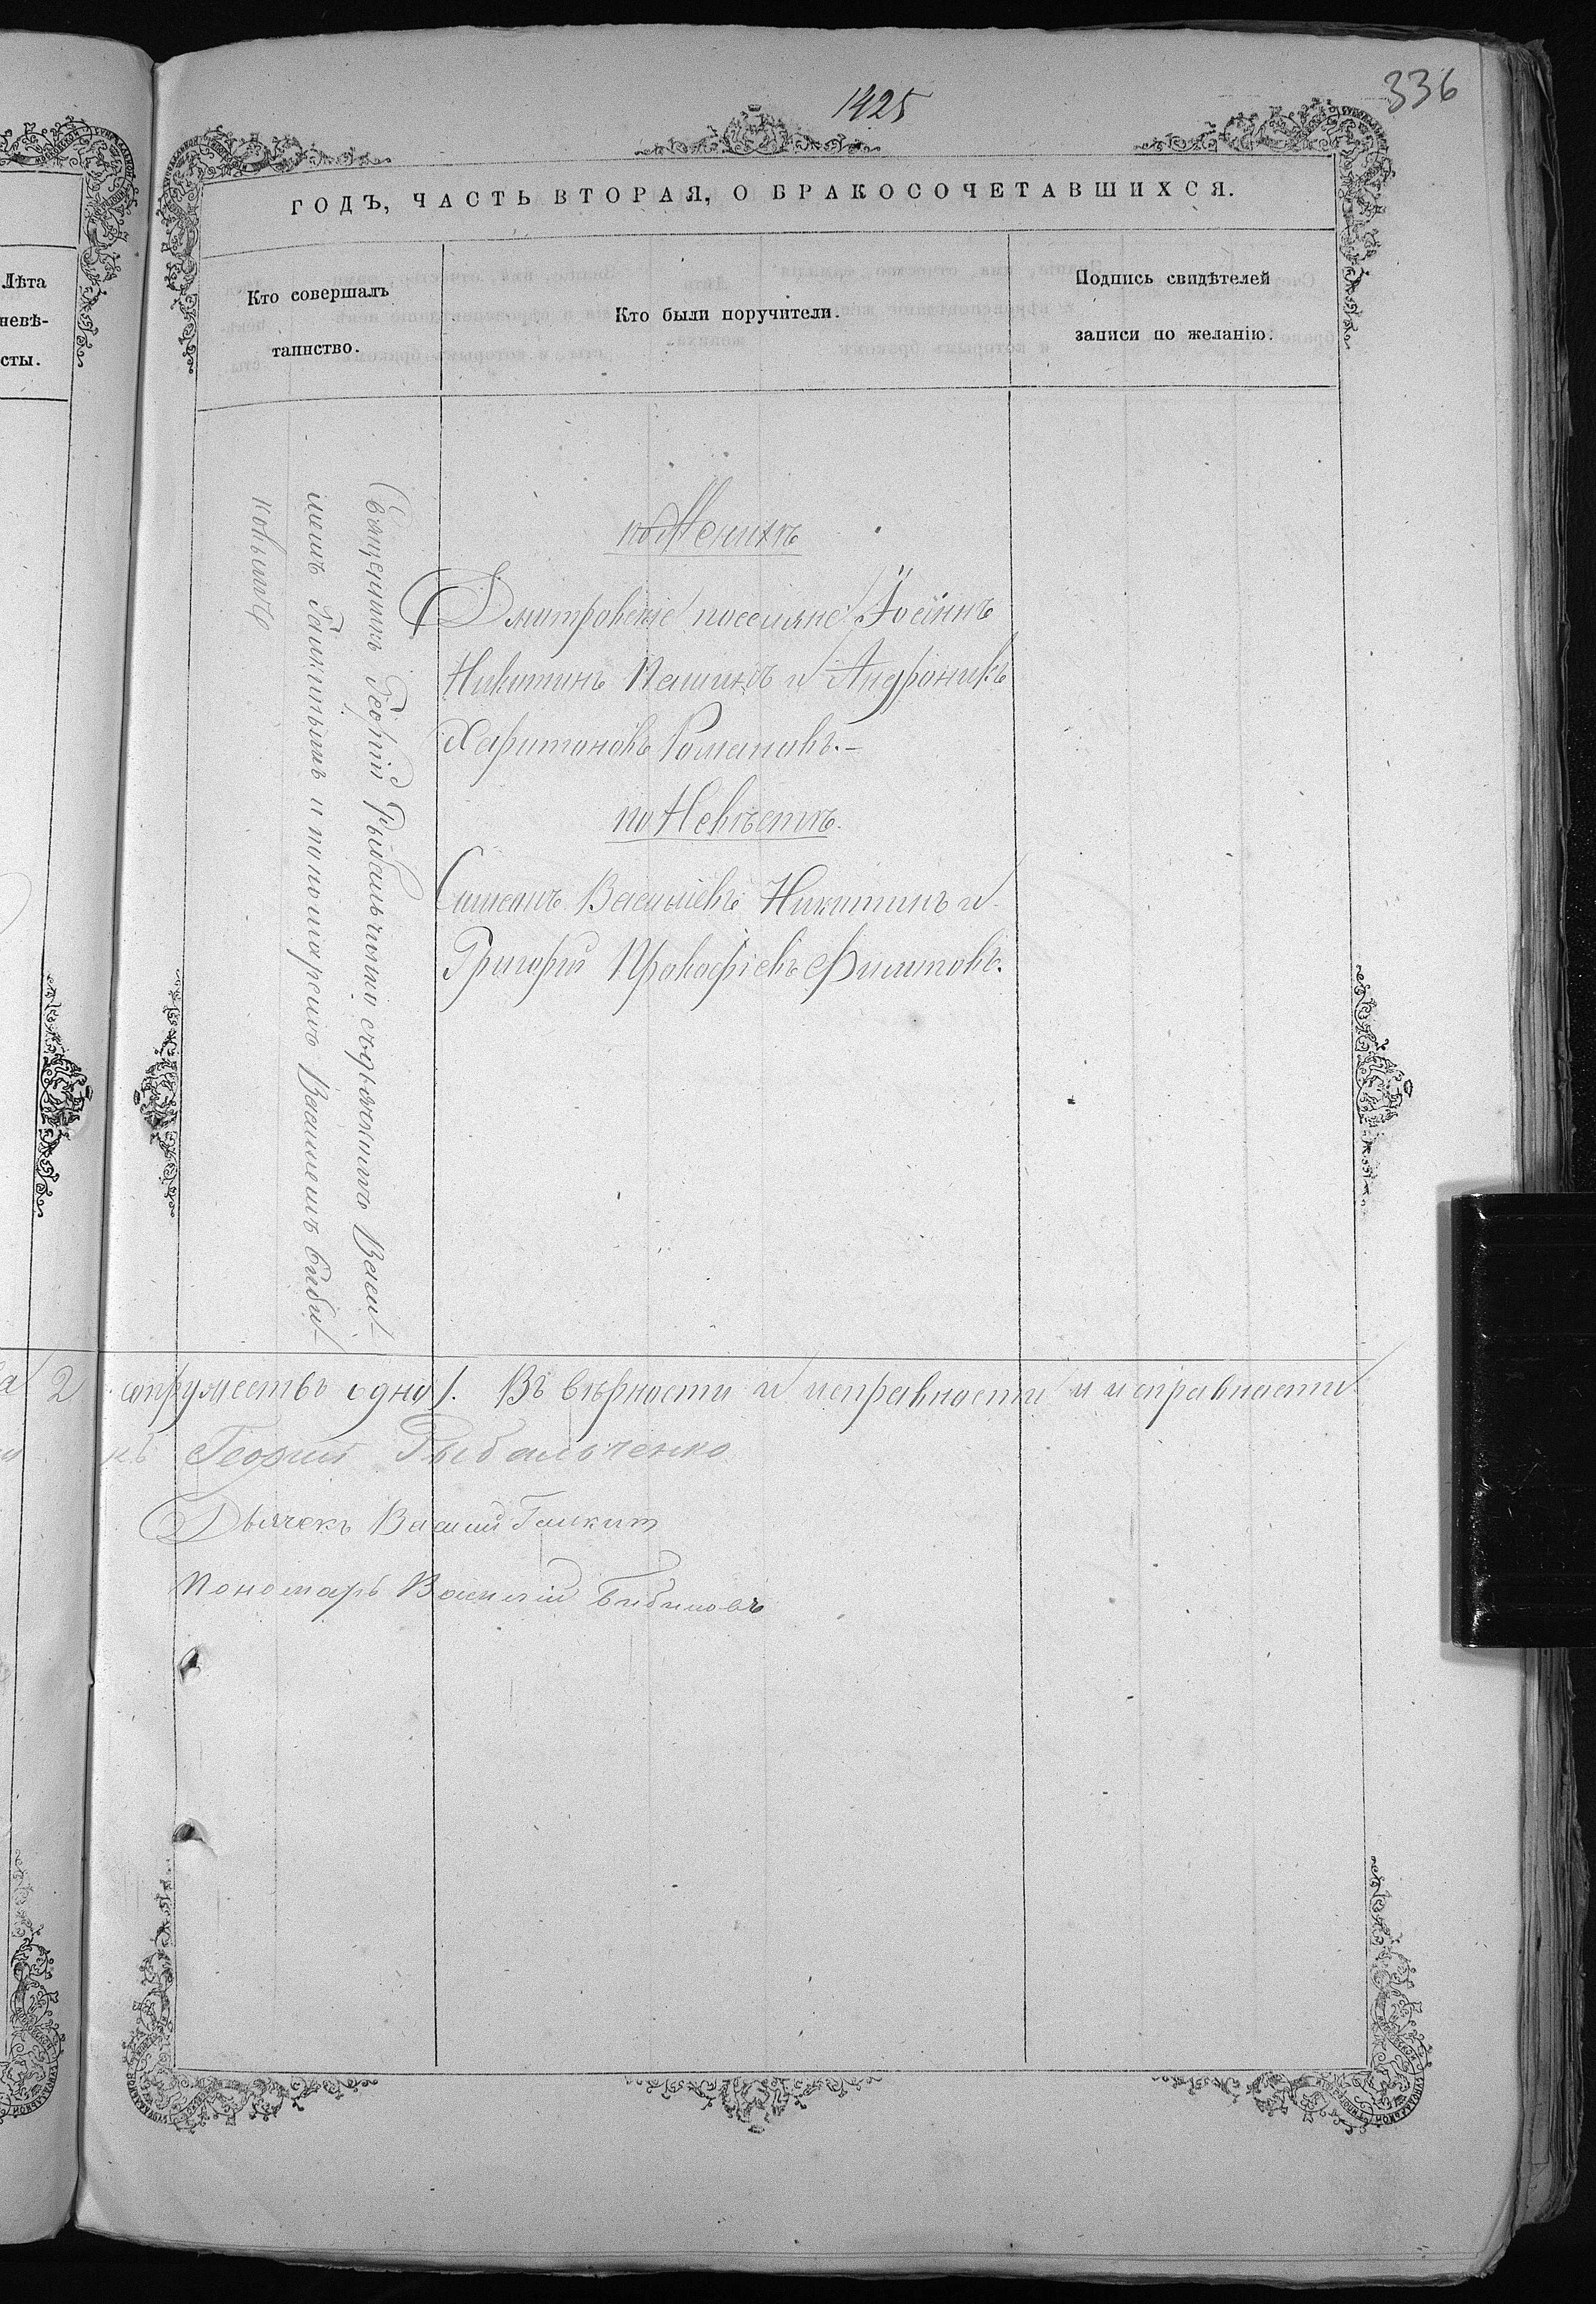 1425
336
ГОДЪ, ЧАСТЬ ВТОРАЯ, О БРАКОСОЧЕТАВШИХСЯ.
Лѣта
невѣ-
сты.
Кто совершалъ
таинство.
Кто были поручители.
Подпись свидѣтелей
записи по желанію.
Священникъ Георгій Рыбальченко съ дьячкомъ Васи-
лiемъ Галкинымъ и пономаремъ Василiемъ Биби-
ковымъ
по Женихѣ
Дмитровскіе поселяне Іоаннъ
Никитинъ Пашинъ и Андроникъ
Харитоновъ Романовъ.-
по Невѣстѣ.
Симеонъ Василіевъ Никитинъ и
Григорій Прокофіевъ Филиповъ.
2 супружествъ одно 1. Въ вѣрности и исправности и исправности
къ Георгій Рыбальченко
Дьячекъ Василій Галкин
Пономарь Василій Бибиковъ